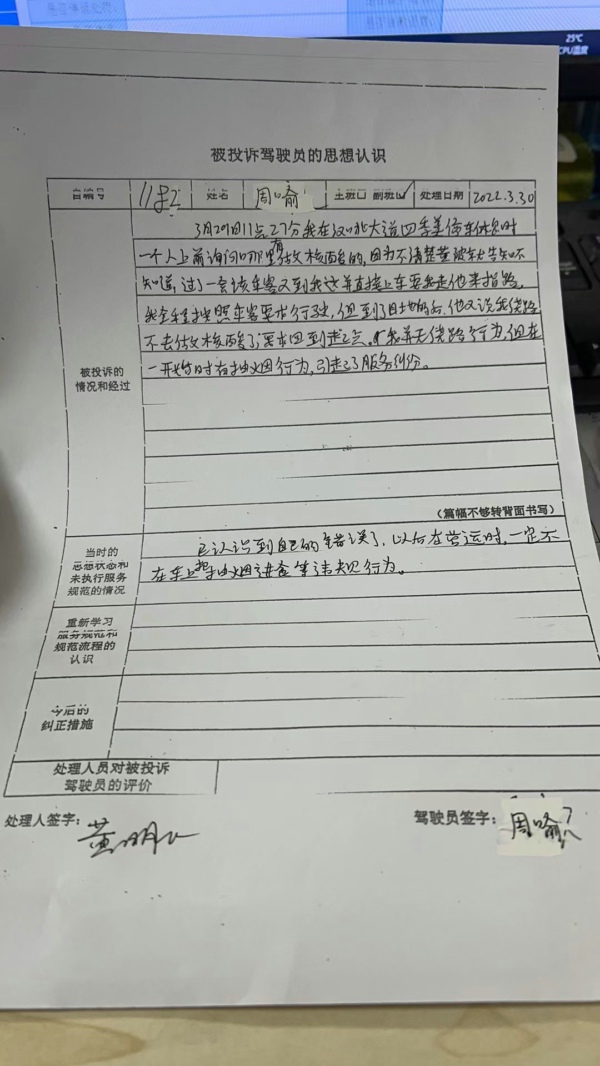 25℃
CPU温度
被投诉驾驶员的思想认识
自编号 姓名 周喻 主班□ 副班☑ 处理日期 2022.3.30
3月29日11点27分我在汉口北大道四季美停车休息时
一个人上前询问哪里有做核酸的,因为不清楚
知道,过了一会该乘客又到我这并直接上车要我走他来指路,
我全程按照乘客要求行驶,但到了目地的后,他又说我绕路
不去做核酸了要求回到起点,我并无绕路行为,但在
一开始时有抽烟行为,引起了服务纠纷。
被投诉的
情况和经过
(篇幅不够转背面书写)
当时的
思想状态和
未执行服务
规范的情况
已认识到自己的错误了,以后在营运时,一定不
在车上抽烟进食等违规行为。
重新学习
服务规范和
规范流程的
认识
今后的
纠正措施
处理人员对被投诉
驾驶员的评价
处理人签字:
驾驶员签字: 周喻